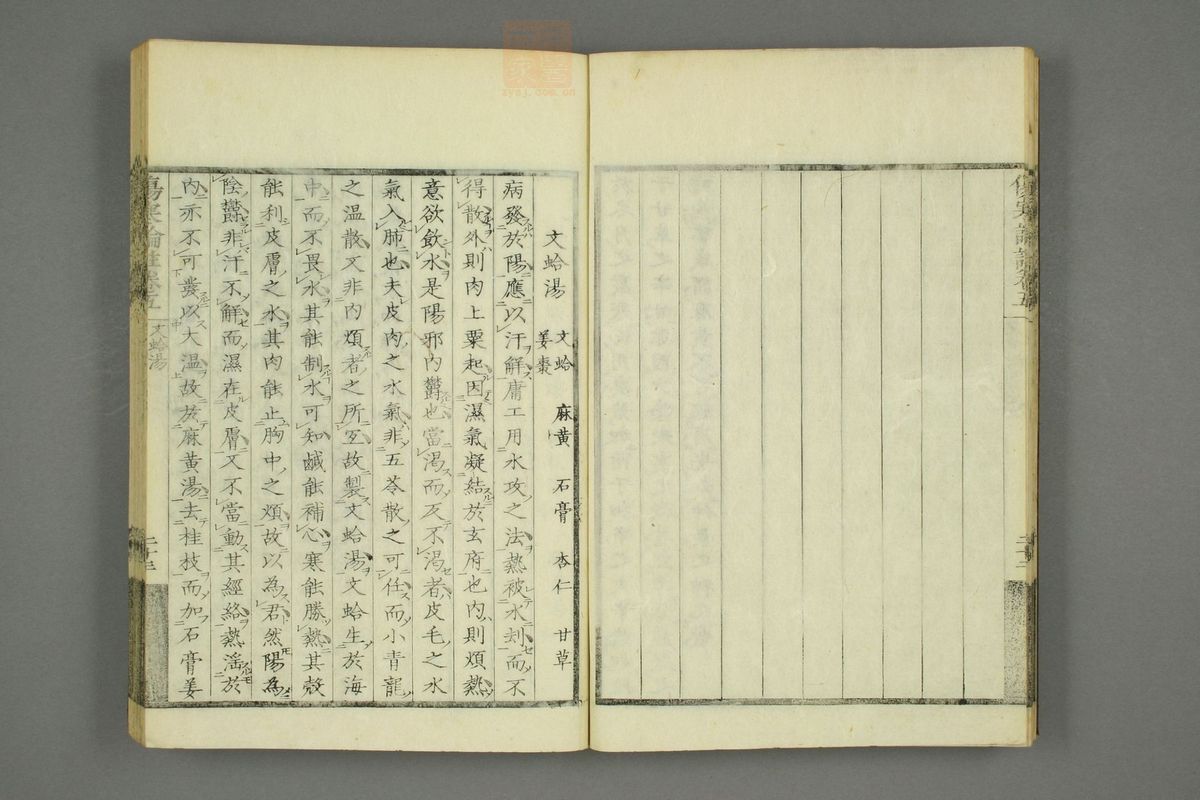 文蛤湯 文蛤 麻黄 石膏 杏仁 甘草
姜棗
病發於陽應以汗解庸工用水攻之法熱被水刦而不
得散外則肉上粟起因濕氣凝結於玄府也内則煩熱
意欲飲水是陽邪内欝也當渴而反不渴者皮毛之水
氣入肺也夫皮肉之水氣非五苓散之可任而小青龍
之温散又非内煩者之所宐故製文蛤湯文蛤生於海
中而不畏水其能制水可知鹹能補心寒能勝熱其殼
能利皮膚之水其肉能止胸中之煩故以為君然陽為
陰欝非汗不解而濕在皮膚又不當動其經絡熱滛於
内亦不可發以大温故於麻黄湯去桂枝而加石膏姜
文蛤湯